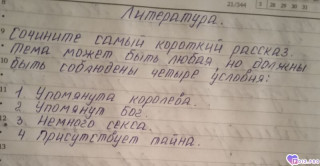 Литература.
Сочините самый короткий рассказ.
Тема может быть любая но должны
быть соблюдены четыре условия:
1. Упомянута королева.
2. Упомянут бог.
3. Немного секса.
4. Присутствует тайна.